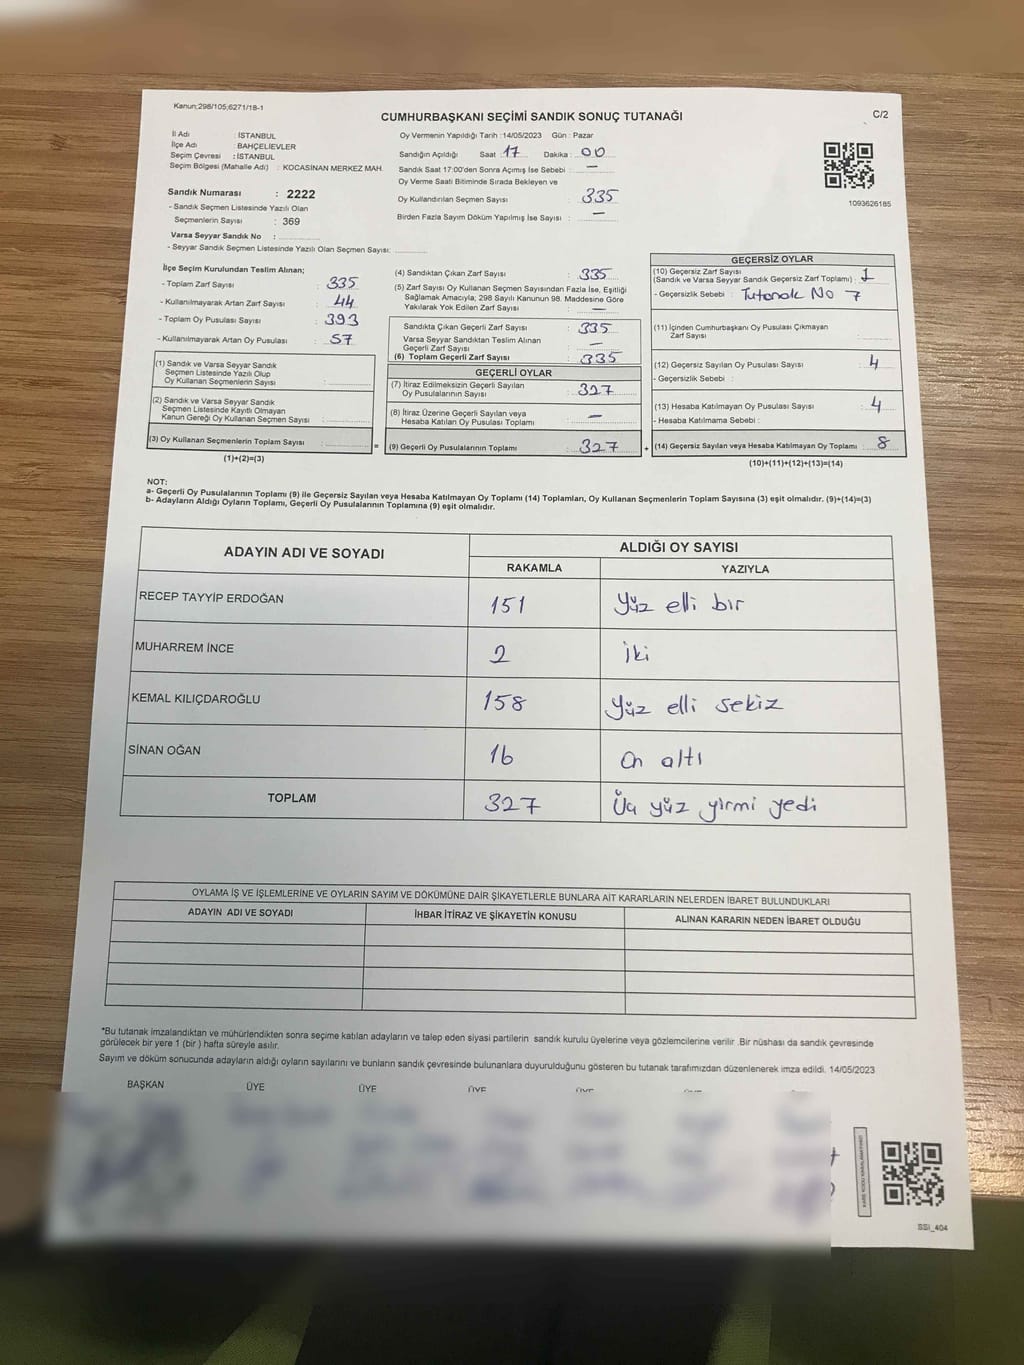 Kanun;298/105;6271/18-1
CUMHURBAŞKANI SEÇİMİ SANDIK SONUÇ TUTANAĞI
C/2
İl Adı : İSTANBUL
İlçe Adı : BAHÇELİEVLER
Seçim Çevresi : İSTANBUL
Seçim Bölgesi (Mahalle Adı) : KOCASİNAN MERKEZ MAH.
Sandık Numarası : 2222
- Sandık Seçmen Listesinde Yazılı Olan
Seçmenlerin Sayısı : 369
Varsa Seyyar Sandık No :
- Seyyar Sandık Seçmen Listesinde Yazılı Olan Seçmen Sayısı:
Oy Vermenin Yapıldığı Tarih :14/05/2023 Gün : Pazar
Sandığın Açıldığı Saat : 17 Dakika : 00
Sandık Saat 17:00'den Sonra Açımış İse Sebebi : —
Oy Verme Saati Bitiminde Sırada Bekleyen ve
Oy Kullandırılan Seçmen Sayısı : 335
Birden Fazla Sayım Döküm Yapılmış İse Sayısı : —
1093626185
İlçe Seçim Kurulundan Teslim Alınan;
- Toplam Zarf Sayısı : 335
- Kullanılmayarak Artan Zarf Sayısı : 44
- Toplam Oy Pusulası Sayısı : 393
- Kullanılmayarak Artan Oy Pusulası : 57
(1) Sandık ve Varsa Seyyar Sandık
Seçmen Listesinde Yazılı Olup
Oy Kullanan Seçmenlerin Sayısı :
(2) Sandık ve Varsa Seyyar Sandık
Seçmen Listesinde Kayıtlı Olmayan
Kanun Gereği Oy Kullanan Seçmen Sayısı :
(3) Oy Kullanan Seçmenlerin Toplam Sayısı : =
(1)+(2)=(3)
(4) Sandıktan Çıkan Zarf Sayısı : 335
(5) Zarf Sayısı Oy Kullanan Seçmen Sayısından Fazla İse, Eşitliği
Sağlamak Amacıyla; 298 Sayılı Kanunun 98. Maddesine Göre
Yakılarak Yok Edilen Zarf Sayısı : —
Sandıkta Çıkan Geçerli Zarf Sayısı : 335
Varsa Seyyar Sandıktan Teslim Alınan
Geçerli Zarf Sayısı : —
(6) Toplam Geçerli Zarf Sayısı : 335
GEÇERLİ OYLAR
(7) İtiraz Edilmeksizin Geçerli Sayılan
Oy Pusulalarının Sayısı : 327
(8) İtiraz Üzerine Geçerli Sayılan veya
Hesaba Katılan Oy Pusulası Toplamı : —
(9) Geçerli Oy Pusulalarının Toplamı : 327 +
GEÇERSİZ OYLAR
(10) Geçersiz Zarf Sayısı
(Sandık ve Varsa Seyyar Sandık Geçersiz Zarf Toplamı) : 1
- Geçersizlik Sebebi : Tutanak No 7
(11) İçinden Cumhurbaşkanı Oy Pusulası Çıkmayan
Zarf Sayısı :
(12) Geçersiz Sayılan Oy Pusulası Sayısı : 4
- Geçersizlik Sebebi :
(13) Hesaba Katılmayan Oy Pusulası Sayısı : 4
- Hesaba Katılmama Sebebi :
(14) Geçersiz Sayılan veya Hesaba Katılmayan Oy Toplamı : 8
(10)+(11)+(12)+(13)=(14)
NOT:
a- Geçerli Oy Pusulalarının Toplamı (9) ile Geçersiz Sayılan veya Hesaba Katılmayan Oy Toplamı (14) Toplamları, Oy Kullanan Seçmenlerin Toplam Sayısına (3) eşit olmalıdır. (9)+(14)=(3)
b- Adayların Aldığı Oyların Toplamı, Geçerli Oy Pusulalarının Toplamına (9) eşit olmalıdır.
ADAYIN ADI VE SOYADI
ALDIĞI OY SAYISI
RAKAMLA YAZIYLA
RECEP TAYYİP ERDOĞAN 151 Yüz elli bir
MUHARREM İNCE 2 İki
KEMAL KILIÇDAROĞLU 158 Yüz elli sekiz
SİNAN OĞAN 16 On altı
TOPLAM 327 Üç yüz yirmi yedi
OYLAMA İŞ VE İŞLEMLERİNE VE OYLARIN SAYIM VE DÖKÜMÜNE DAİR ŞİKAYETLERLE BUNLARA AİT KARARLARIN NELERDEN İBARET BULUNDUKLARI
ADAYIN ADI VE SOYADI İHBAR İTİRAZ VE ŞİKAYETİN KONUSU ALINAN KARARIN NEDEN İBARET OLDUĞU
*Bu tutanak imzalandıktan ve mühürlendikten sonra seçime katılan adayların ve talep eden siyasi partilerin sandık kurulu üyelerine veya gözlemcilerine verilir .Bir nüshası da sandık çevresinde
görülecek bir yere 1 (bir ) hafta süreyle asılır.
Sayım ve döküm sonucunda adayların aldığı oyların sayılarını ve bunların sandık çevresinde bulunanlara duyurulduğunu gösteren bu tutanak tarafımızdan düzenlenerek imza edildi. 14/05/2023
BAŞKAN ÜYE ÜYE ÜYE
SSI_404